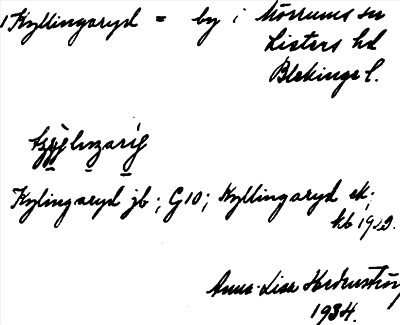 1 Kyllingaryd = by i Mörrums sn
Listers hd
Blekinge l.
Kylingaryd jb; G10; Kyllingaryd ek;
kb 1922.
Anna-Lisa
1934.